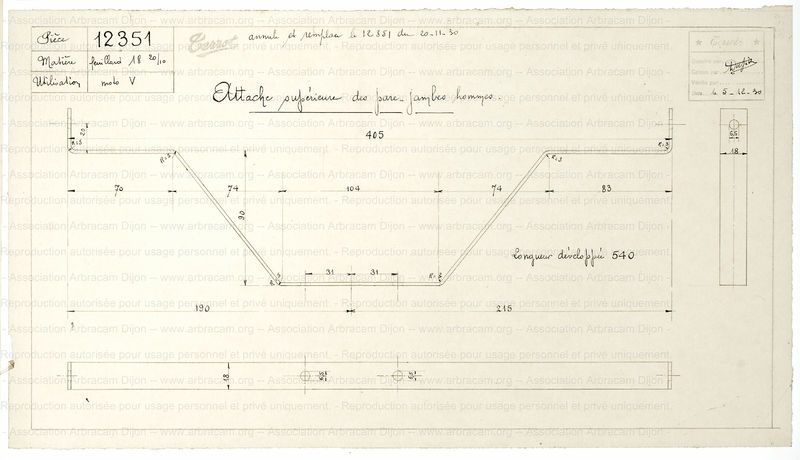 Pièce 12351
Matière feuillard 18 20/10
Utilisation moto V
Terrot
annule et remplace le 12351 du 20-11-30
Terrot
le 5-12-30
Attache supérieure des pare-jambes hommes.
405
20
R=3
R=3
R=3
R=3
6,5
18
70
74
104
74
83
90
Longueur développée 540
31
31
190
215
18
6,5
6,5
Reproduction autorisée pour usage personnel et privé uniquement.
Association Arbracam Dijon – www.arbracam.org